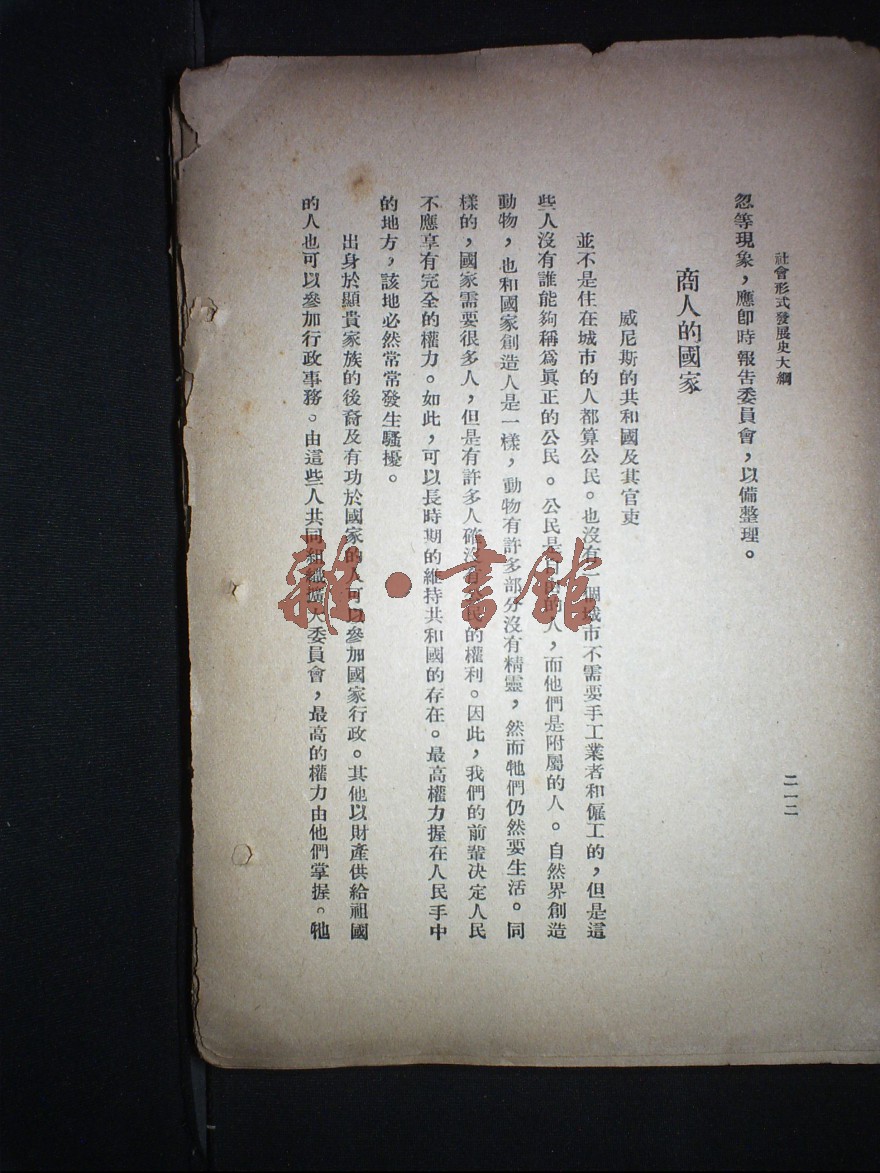 社會形式發展史大綱
二一二
忽等現象，應卽時報告委員會，以備整理。
商人的國家
威尼斯的共和國及其官吏
並不是住在城市的人都算公民。也沒有一個城市不需要手工業者和僱工的，但是這
些人沒有誰能夠稱爲眞正的公民。公民是自由的人，而他們是附屬的人。自然界創造
動物，也和國家創造人是一樣，動物有許多部分沒有精靈，然而牠們仍然要生活。同
樣的，國家需要很多人，但是有許多人確沒有公民的權利。因此，我們的前輩決定人民
不應享有完全的權力。如此，可以長時期的維持共和國的存在。最高權力握在人民手中
的地方，該地必然常常發生騷擾。
出身於顯貴家族的後裔及有功於國家的人可以參加國家行政。其他以財產供給祖國
的人也可以參加行政事務。由這些人共同組織擴大委員會，最高的權力由他們掌握。牠
雜·書館